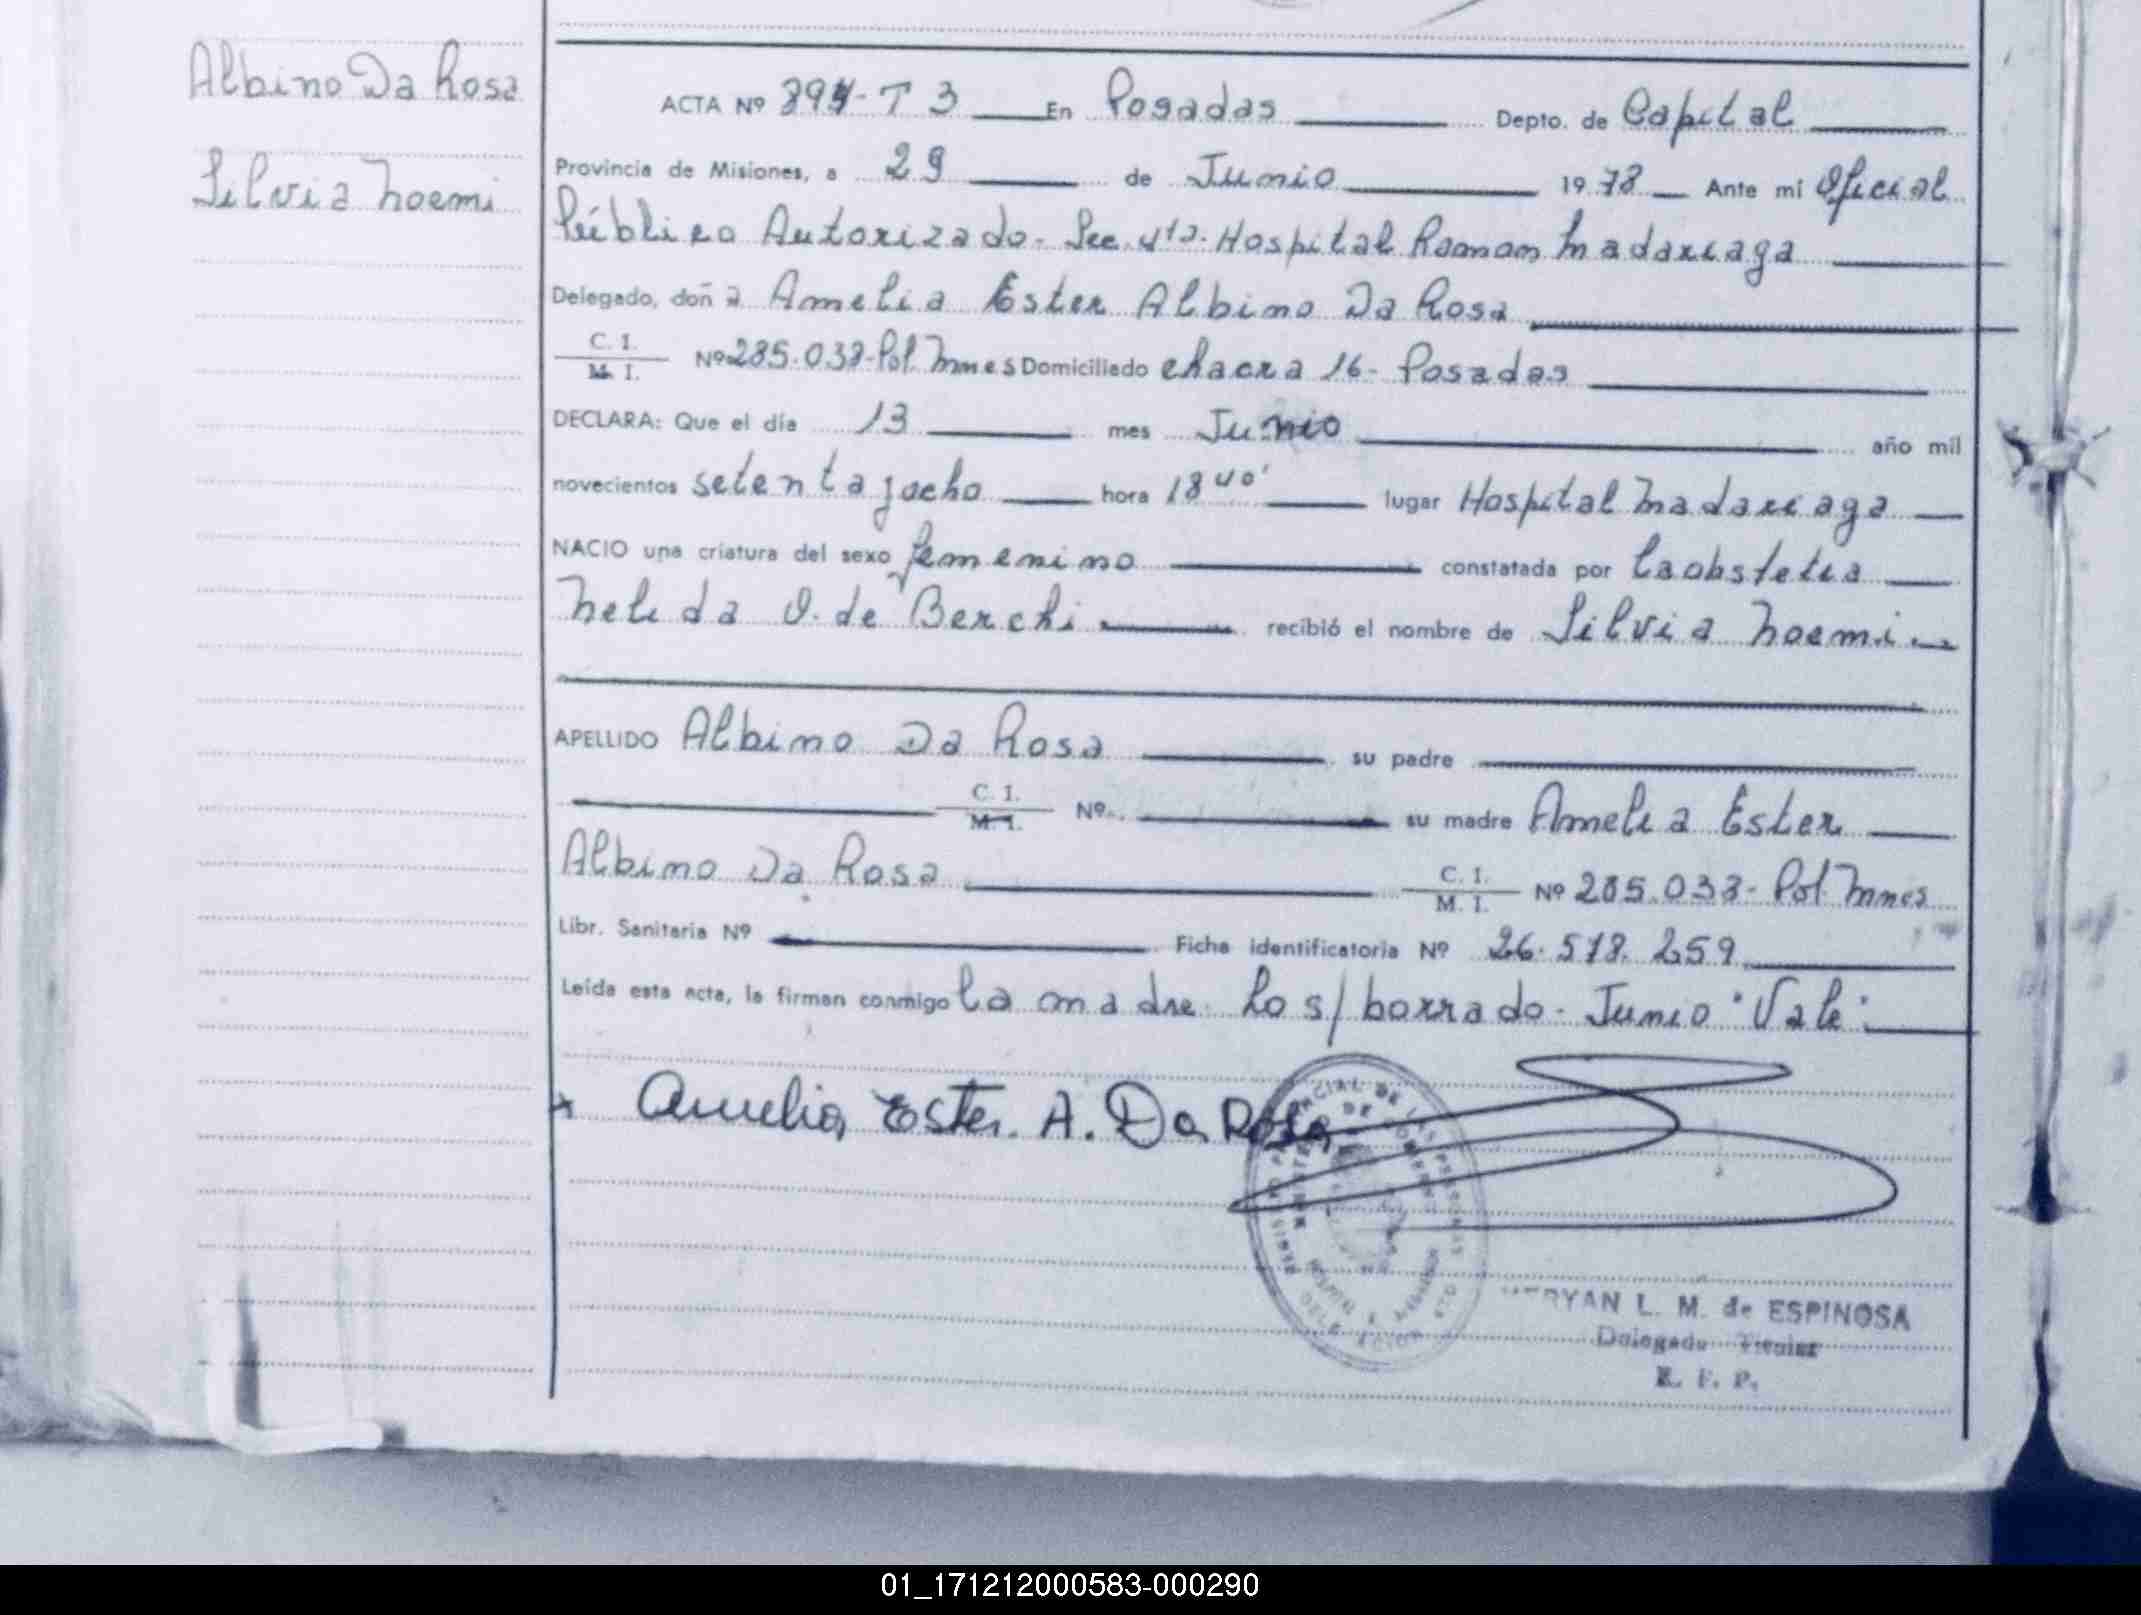 Albino Da Rosa
Silvia Noemi
ACTA Nº 894-T 3 En Posadas Depto. de Capital
Provincia de Misiones, a 29 de Junio 1978 Ante mi Oficial
Público Autorizado. Sec. 4ta. Hospital Ramon Madariaga
Delegado, doña Amelia Ester Albino Da Rosa
C. I.
M. I. Nº 285.038-Pol Mnes Domiciliado chacra 16- Posadas
DECLARA: Que el día 13 mes Junio año mil
novecientos setenta y ocho hora 18 40' lugar Hospital Madariaga
NACIO una criatura del sexo femenino constatada por La obstetra
Nelida O. de Berchi recibió el nombre de Silvia Noemi
APELLIDO Albino Da Rosa su padre
C. I.
M. I. Nº su madre Amelia Ester
Albino Da Rosa C. I.
M. I. Nº 285.038- Pol Mnes
Libr. Sanitaria Nº Ficha identificatoria Nº 26.518.259
Leída esta acta, la firman conmigo la madre. Lo s/ borrado. Junio "Vale".
Amelia Ester. A. Da Rosa
L. M. de ESPINOSA
Delegado Titular
R. P.
01_171212000583-000290